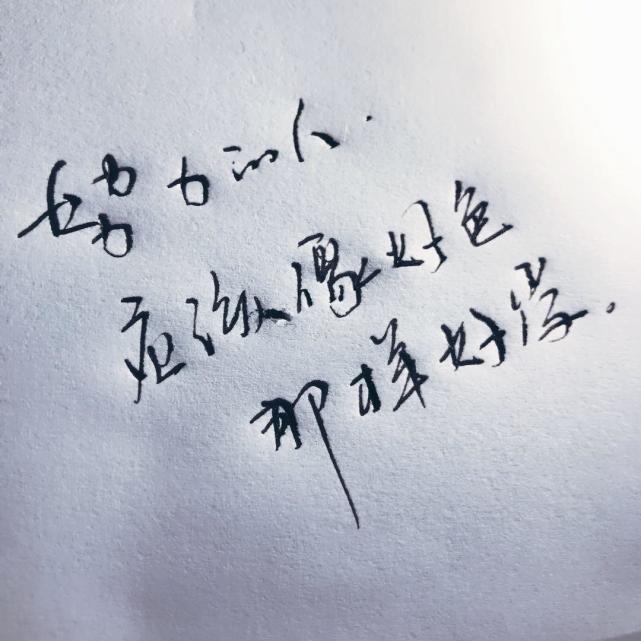 努力的人.
应该像好色
那样好学.